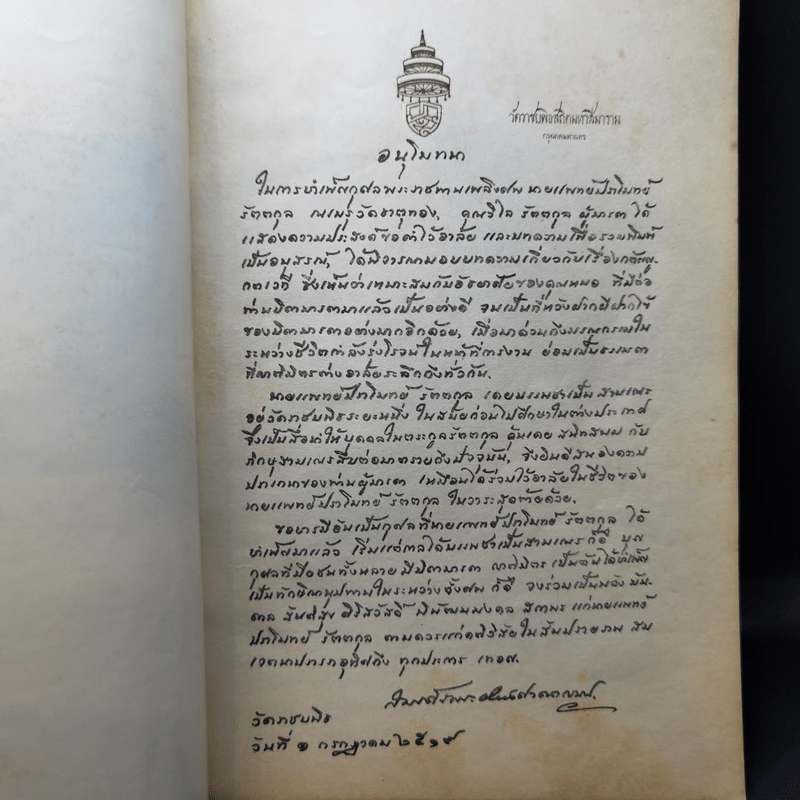 วัดราชบพิธสถิตมหาสีมาราม
กรุงเทพมหานคร
อนุโมทนา
ในการบำเพ็ญกุศลพระราชทานเพลิงศพ นายแพทย์ปราโมทย์
รัตตกูล ณเมรุวัดธาตุทอง, คุณวิไล รัตตกูล ผู้มารดา ได้
แสดงความประสงค์ขอคำไว้อาลัย และบทความเพื่อรวมพิมพ์
เป็นอนุสรณ์, ได้พิจารณามอบบทความเกี่ยวกับเรื่องกตัญญู-
กตเวที ซึ่งเห็นว่าเหมาะสมกับอัธยาศัยของคุณหมอ ที่มีต่อ
ท่านบิดามารดามาแล้วเป็นอย่างดี จนเป็นที่หวังฝากผีฝากไข้
ของบิดามารดาอย่างมากอีกด้วย, เมื่อมาด่วนถึงมรณกรรมใน
ระหว่างชีวิตกำลังรุ่งโรจน์ในหน้าที่การงาน ย่อมเป็นธรรมดา
ที่ญาติมิตรต่างอาลัยระลึกถึงทั่วกัน.
นายแพทย์ปราโมทย์ รัตตกูล เคยบรรพชาเป็นสามเณร
อยู่วัดราชบพิธระยะหนึ่ง ในสมัยก่อนไปศึกษาในต่างประเทศ
จึงเป็นสื่อนำให้บุคคลในตระกูลรัตตกูล คุ้นเคย สนิทสนม กับ
ภิกษุสามเณรสืบต่อมาตรายถึงปัจจุบัน, จึงยินดีสนองความ
ปรารถนาของท่านผู้มารดา เหมือนได้ร่วมไว้อาลัยในชีวิตของ
นายแพทย์ปราโมทย์ รัตตกูล ในวาระสุดท้ายด้วย.
ขอบารมีอันเป็นกุศลที่นายแพทย์ปราโมทย์ รัตตกูล ได้
บำเพ็ญมาแล้ว เริ่มแต่กาลได้บรรพชาเป็นสามเณร ก็ดี บุญ
กุศลที่มีชนทั้งหลาย มีมารดา ญาติมิตร เป็นต้นได้บำเพ็ญ
เป็นทักษิณานุปทานในระหว่างตั้งศพ ก็ดี จงร่วมเป็นพลัง บัน-
ดาล สันติสุข สิริสวัสดิ์ พิพัฒนมงคล สถาพร แก่นายแพทย์
ปราโมทย์ รัตตกูล ตามควรแก่คติวิสัยในสัมปรายภพ สม
เจตนาปรารภอุทิศถึง ทุกประการ เทอญ.
วัดราชบพิธ
วันที่ ๑ กรกฎาคม ๒๕๑๙